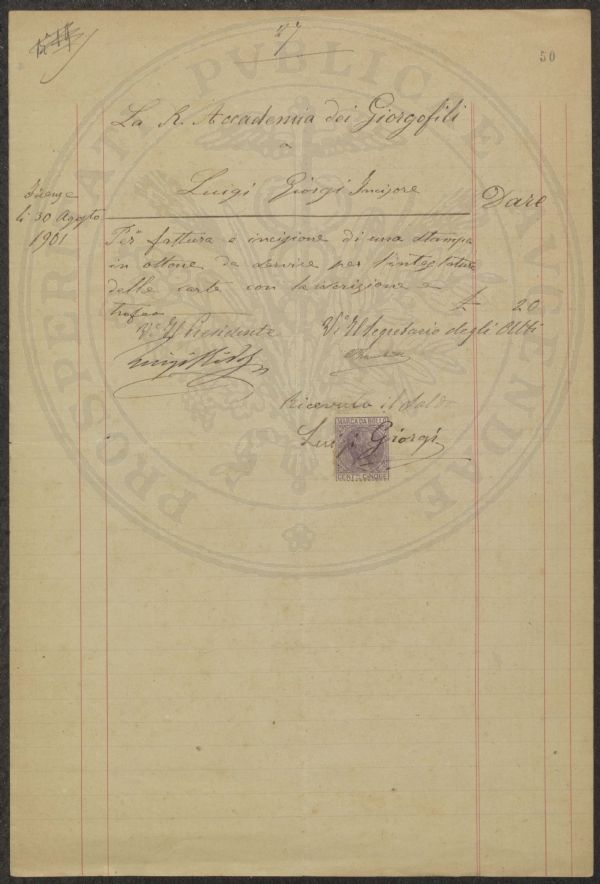 57
50
La R. Accademia dei Giorgofili
a
Luigi Giorgi Incisore
Dare
Firenze
li 30 Agosto
1901
Per fattura e incisione di una stampa
in ottone da servire per l'intestatura
delle carte con la iscrizione e
trofeo
£ 20
V.o Il Presidente
V.o Il Segretario degli Atti
Ricevuto il saldo
Luigi Giorgi
MARCA DA BOLLO
CENT. CINQUE
PROSPERITATI PVBLICAE AVGENDAE